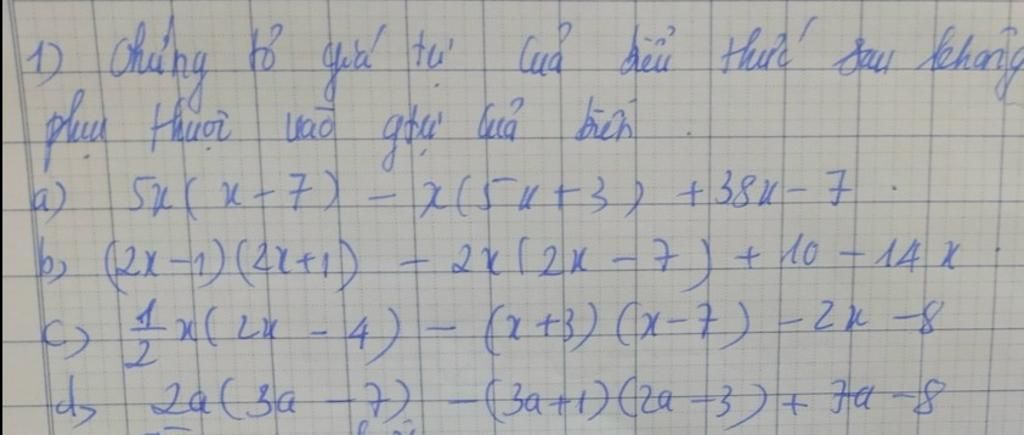 1) Chứng tỏ giá trị của biểu thức sau không
phụ thuộc vào gtrị của biến.
a) 5x(x - 7) - x(5x + 3) + 38x - 7.
b) (2x - 1)(2x + 1) - 2x(2x - 7) + 10 - 14x.
c) \frac{1}{2}x(2x - 4) - (x + 3)(x - 7) - 2x - 8
d) 2a(3a - 7) - (3a + 1)(2a - 3) + 7a - 8